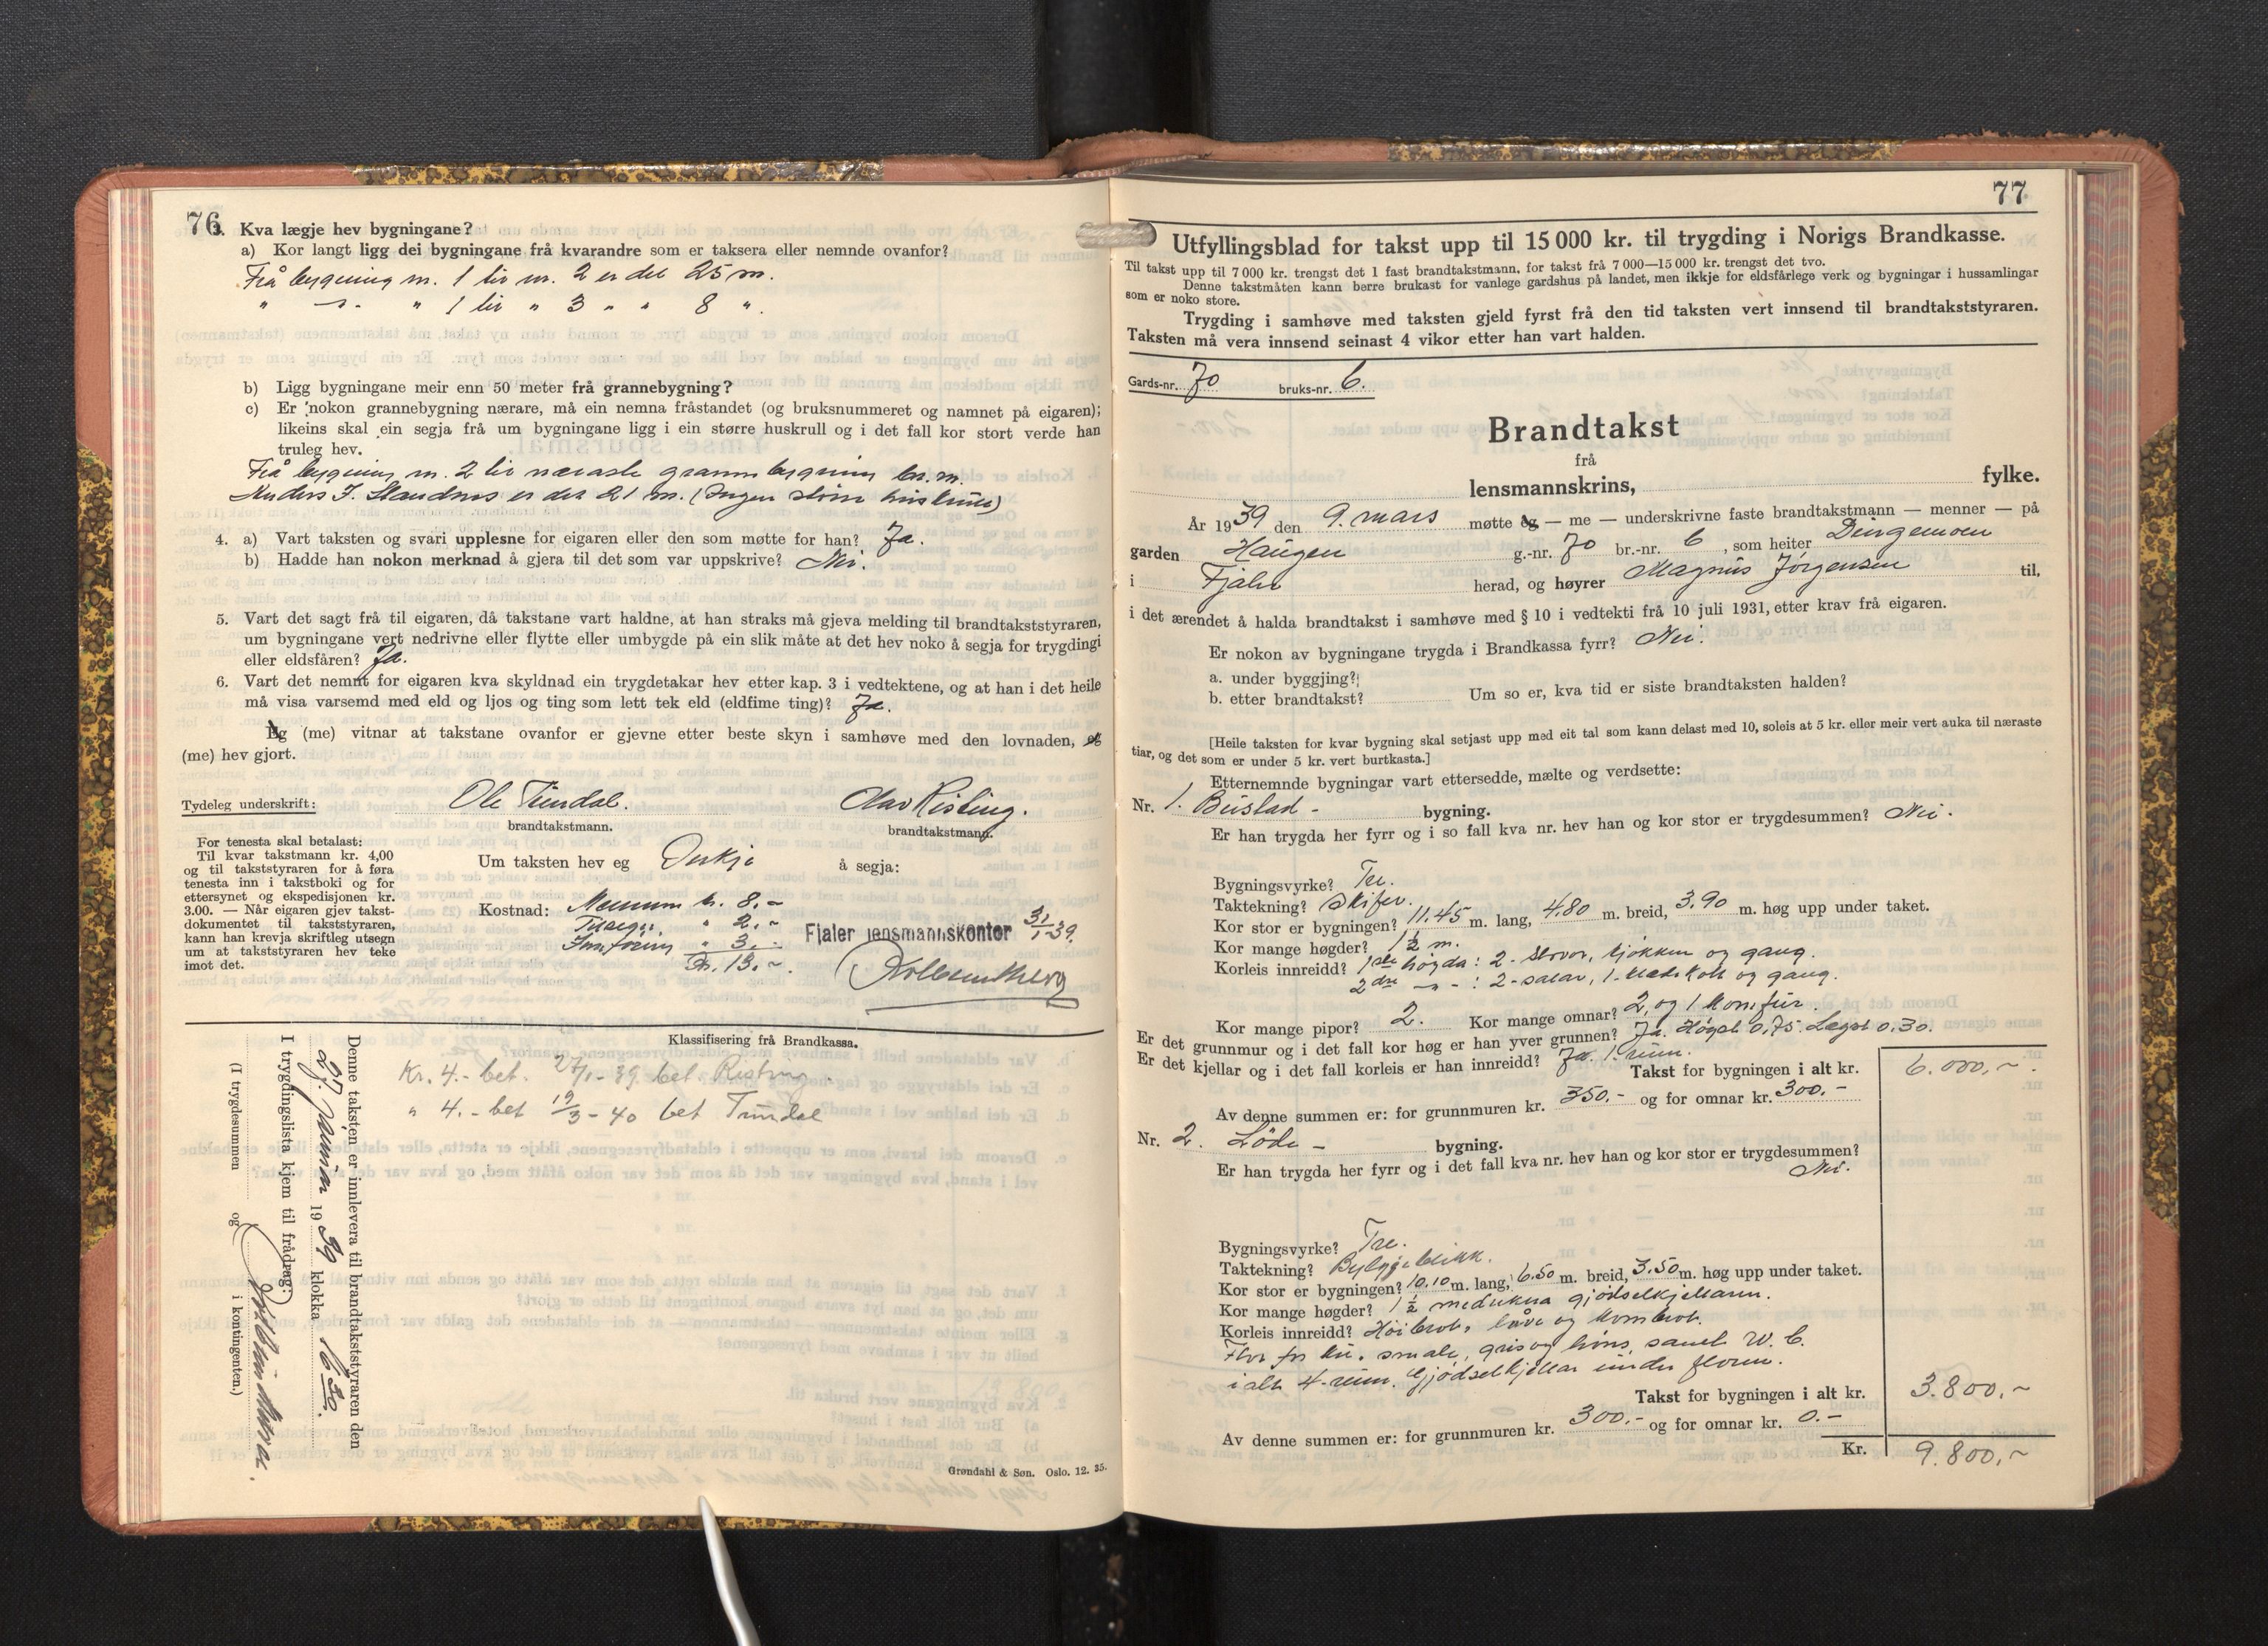 76
3. Kva lægje hev bygningane?
a) Kor langt ligg dei bygningane frå kvarandre som er taksera eller nemnde ovanfor?
Frå bygning nr. 1 til nr. 2 er det 25 m.
" -"- " 1 til " 3 " " 8 ".
b) Ligg bygningane meir enn 50 meter frå grannebygning?
c) Er nokon grannebygning nærare, må ein nemna fråstandet (og bruksnummeret og namnet på eigaren);
likeins skal ein segja frå um bygningane ligg i ein større huskrull og i det fall kor stort verde han
truleg hev.
Frå bygning nr. 2 til næraste grannebygning br.nr.
Anders J. er det 21 m. (Ingen større huskrull)
4. a) Vart taksten og svari upplesne for eigaren eller den som møtte for han? Ja.
b) Hadde han nokon merknad å gjera til det som var uppskrive? Nei.
5. Vart det sagt frå til eigaren, då takstane vart haldne, at han straks må gjeva melding til brandtakststyraren,
um bygningane vert nedrivne eller flytte eller umbygde på ein slik måte at det hev noko å segja for trygdingi
eller eldsfåren? Ja.
6. Vart det nemnt for eigaren kva skyldnad ein trygdetakar hev etter kap. 3 i vedtektene, og at han i det heile
må visa varsemd med eld og ljos og ting som lett tek eld (eldfime ting)? Ja.
Eg (me) vitnar at takstane ovanfor er gjevne etter beste skyn i samhøve med den lovnaden, eg
(me) hev gjort.
Tydeleg underskrift: Ole Tundal. Olav Risting.
brandtakstmann. brandtakstmann.
For tenesta skal betalast:
Til kvar takstmann kr. 4,00
og til takststyraren for å føra
tenesta inn i takstboki og for
ettersynet og ekspedisjonen kr.
3.00. — Når eigaren gjev takst-
dokumentet til takststyraren,
kann han krevja skriftleg utsegn
um at takststyraren hev teke
imot det.
Um taksten hev eg Inkje å segja:
Kostnad: Mennene kr. 8.-
" 2.-
Innføring " 3.-
Kr. 13.-
Fjaler lensmannskontor 31/1-39.
Klassifisering frå Brandkassa.
Kr. 4.- bet. 27/1-39 bet. Risting.
" 4.- bet 19/3-40 bet Tundal
Denne taksten er innlevera til brandtakststyraren den
27. januar 1939 klokka 16.30.
I trygdingslista kjem til frådrag:
(I trygdesummen og i kontingenten.)
Grøndahl & Søn. Oslo. 12. 35.
77
Utfyllingsblad for takst upp til 15 000 kr. til trygding i Norigs Brandkasse.
Til takst upp til 7 000 kr. trengst det 1 fast brandtakstmann, for takst frå 7 000—15 000 kr. trengst det tvo.
Denne takstmåten kann berre brukast for vanlege gardshus på landet, men ikkje for eldsfårlege verk og bygningar i hussamlingar
som er noko store.
Trygding i samhøve med taksten gjeld fyrst frå den tid taksten vert innsend til brandtakststyraren.
Taksten må vera innsend seinast 4 vikor etter han vart halden.
Gards-nr. 70 bruks-nr. 6.
Brandtakst
frå
lensmannskrins, fylke.
År 1939 den 9. mars møtte eg — me — underskrivne faste brandtakstmann — menner — på
garden Haugen g.-nr. 70 br.-nr. 6, som heiter Dingemoen
i Fjaler herad, og høyrer Magnus Jørgensen til,
i det ærendet å halda brandtakst i samhøve med § 10 i vedtekti frå 10 juli 1931, etter krav frå eigaren.
Er nokon av bygningane trygda i Brandkassa fyrr? Nei.
a. under byggjing?
b. etter brandtakst? Um so er, kva tid er siste brandtaksten halden?
[Heile taksten for kvar bygning skal setjast upp med eit tal som kann delast med 10, soleis at 5 kr. eller meir vert auka til næraste
tiar, og det som er under 5 kr. vert burtkasta.]
Etternemnde bygningar vart ettersedde, mælte og verdsette:
Nr. 1. Bustad - bygning.
Er han trygda her fyrr og i so fall kva nr. hev han og kor stor er trygdesummen? Nei.
Bygningsvyrke? Tre.
Taktekning? Skifer.
Kor stor er bygningen? 11.45 m. lang, 4.80 m. breid, 3.90 m. høg upp under taket.
Kor mange høgder? 1½ m.
Korleis innreidd? 1ste høgda: 2-stovor, kjøkken og gang.
2dre -"- : 2-salar, 1-klædskott og gang.
Kor mange pipor? 2. Kor mange omnar? 2, og 1 komfur.
Er det grunnmur og i det fall kor høg er han yver grunnen? Ja. Høgst 0,75. Lægst 0.30.
Er det kjellar og i det fall korleis er han innreidd? Ja. 1. rum.
Takst for bygningen i alt kr. 6.000,-
Av denne summen er: for grunnmuren kr. 350.- og for omnar kr. 300.-
Nr. 2. Löde - bygning.
Er han trygda her fyrr og i det fall kva nr. hev han og kor stor er trygdesummen?
Nei.
Bygningsvyrke? Tre.
Taktekning? Bylgjeblikk.
Kor stor er bygningen? 10.10 m. lang, 6.50 m. breid, 3.50 m. høg upp under taket.
Kor mange høgder? 1½ medrekna gjødselkjellaren.
Korleis innreidd? Høibrot, låve og kornbrot.
Flor for ku, smale, gris og høns, samt W. C.
i alt 4-rum. Gjødselkjellar under floren.
Takst for bygningen i alt kr. 3.800,-
Av denne summen er: for grunnmuren kr. 300.- og for omnar kr. 0.-
Kr. 9.800,-